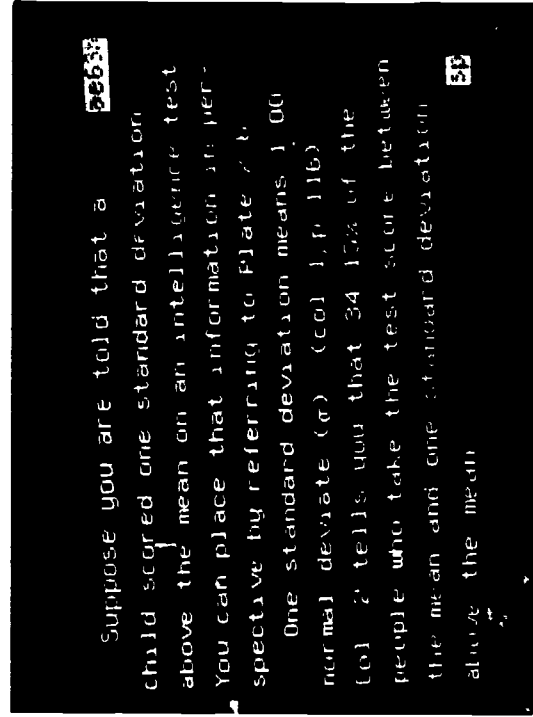 Suppose you are told that a
child scored one standard deviation
above the mean on an intelligence test
You can place that information in per-
spective by referring to Plate
One standard deviation means 1 00
normal deviate (σ) (col 1, p 116)
Col 2 tells you that 34 13% of the
people who take the test score between
the mean and one standard deviation
above the mean
sp